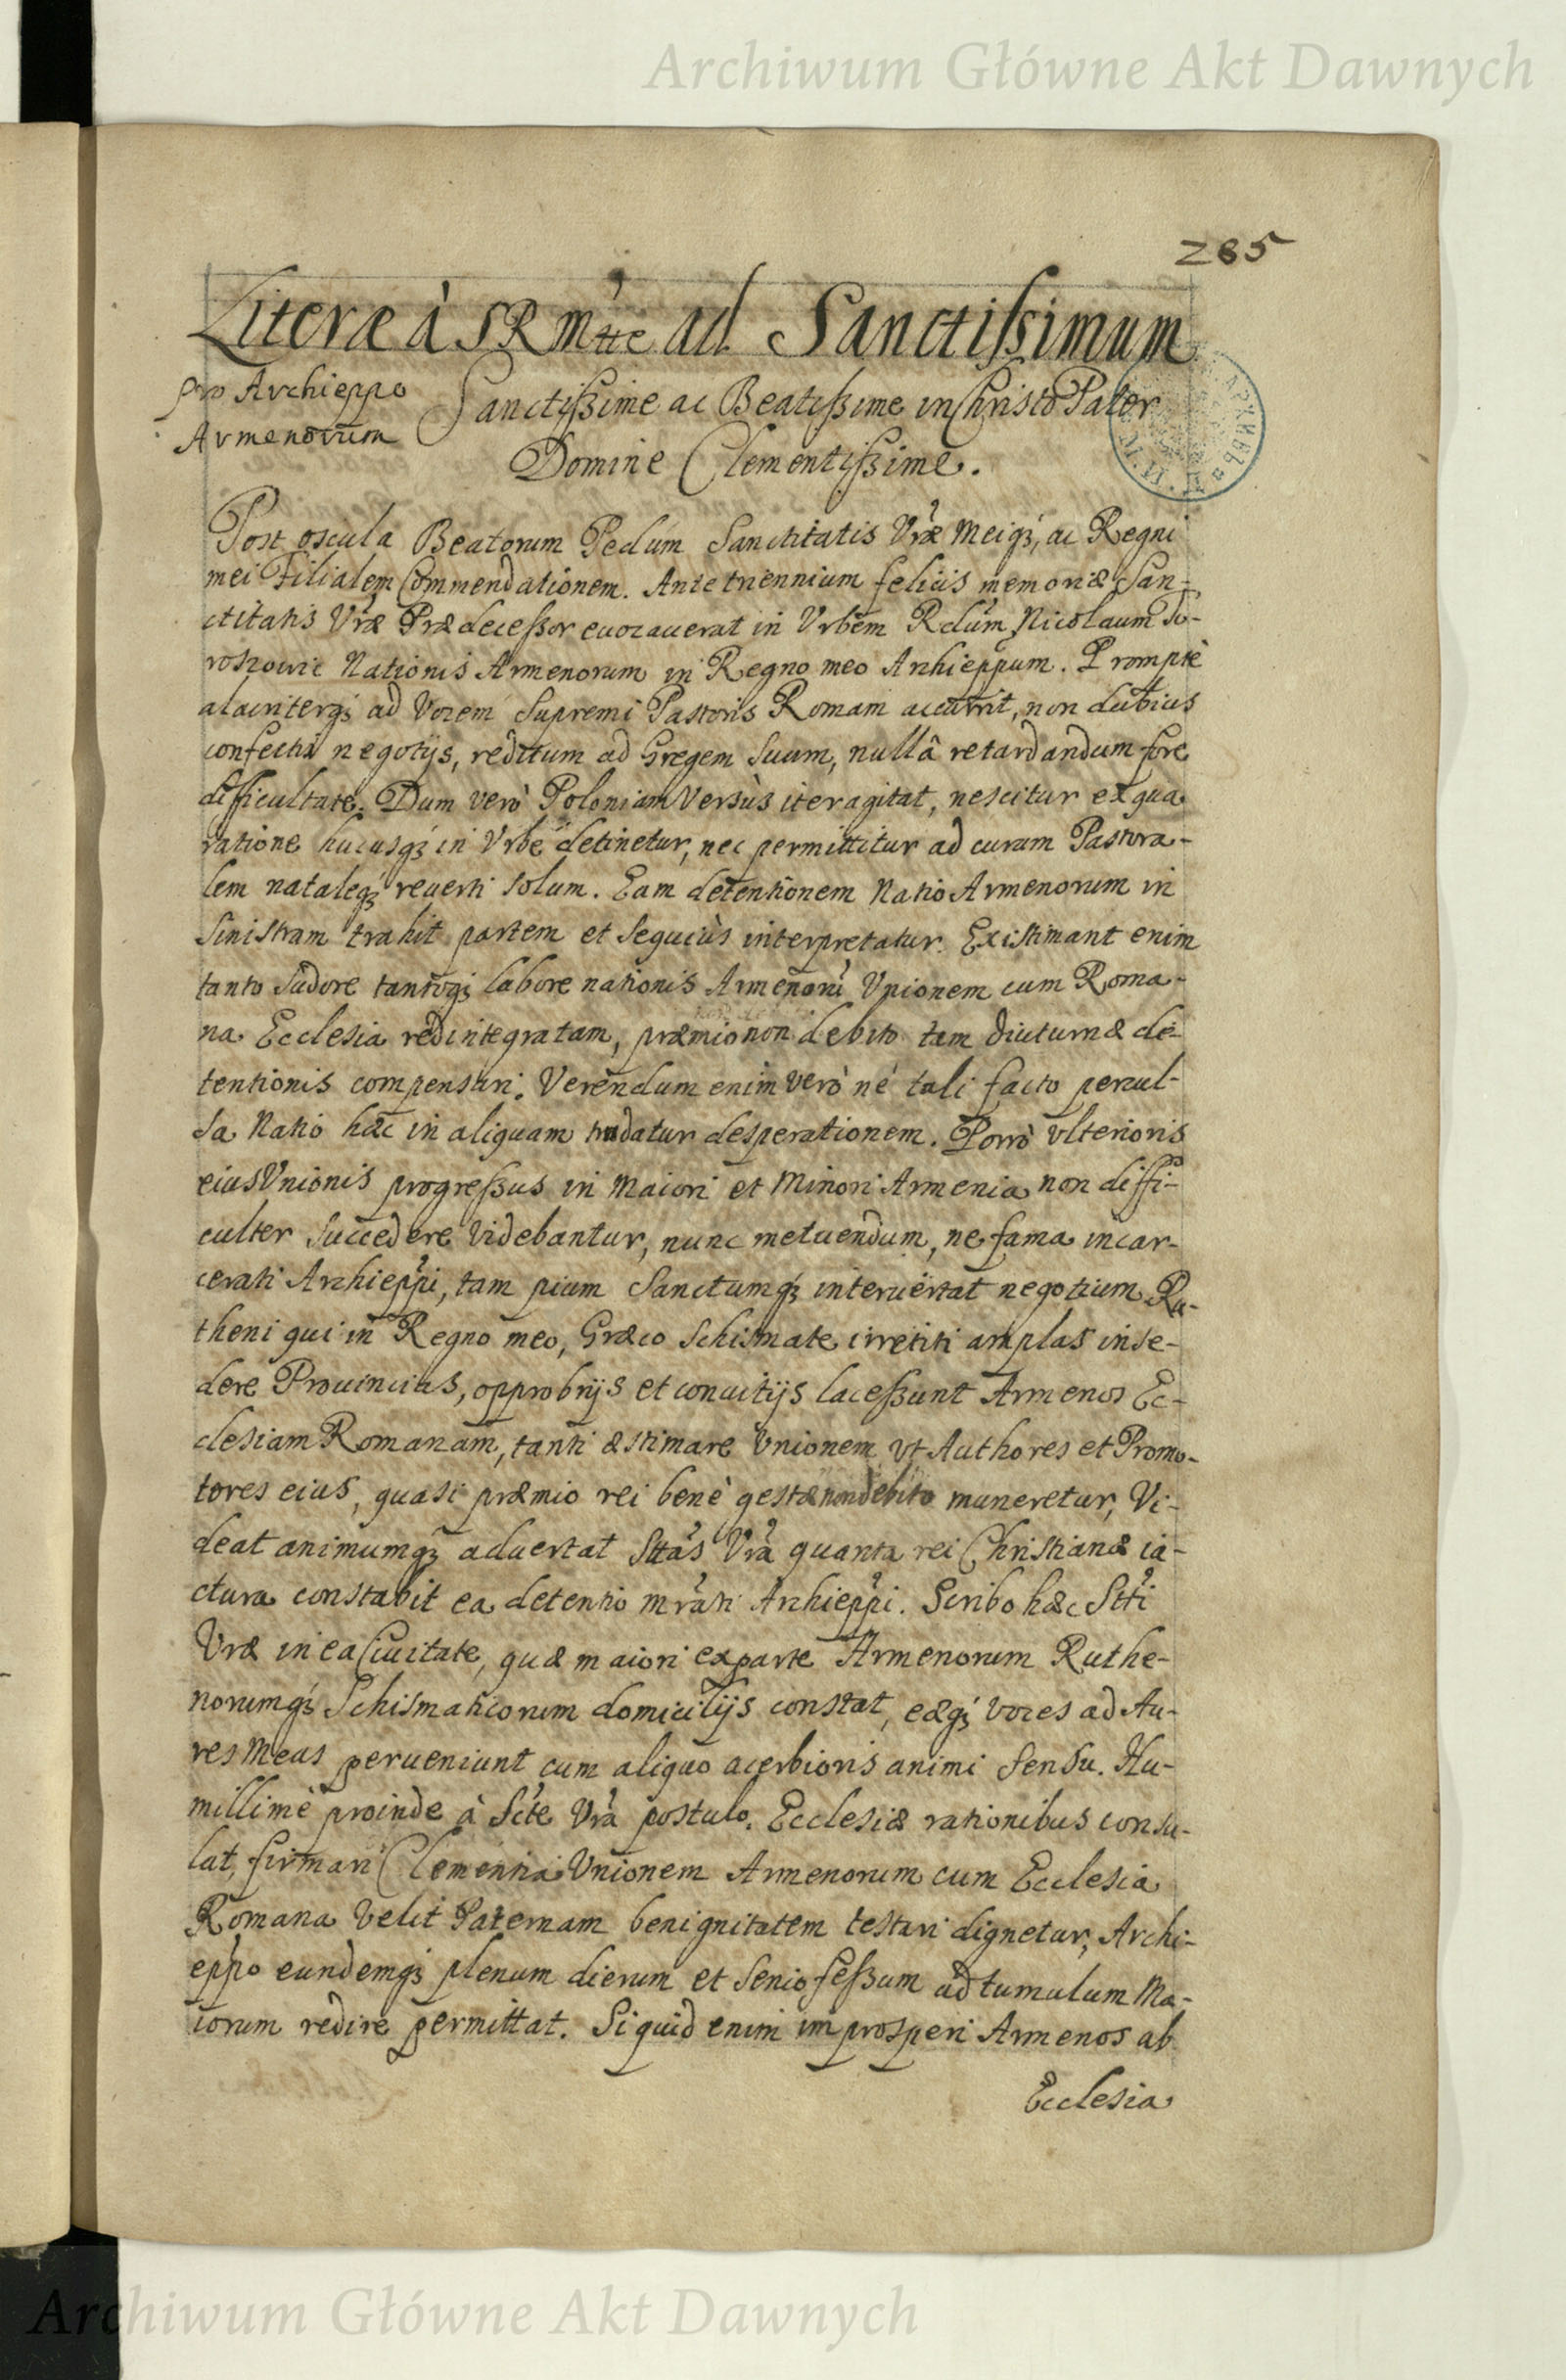 Archiwum Główne Akt Dawnych
285
Literæ à SRMtte ad Sanctissimum
pro Archieppo
Armenorum
Sanctissime ac Beatissime in Christo Pater
Domine Clementissime.
Post oscula Beatorum Pedum Sanctitatis Vræ Meiq́, ac Regni
mei Filialem Commendationem. Ante triennium felicis memoriæ San-
ctitatis Vræ Prædecessor euocauerat in Vrbem Rdum Nicolaum To-
roszowic Nationis Armenorum in Regno meo Archieppum. Promptè
alacriterq́ ad Vocem Supremi Pastoris Romam accurrit, non dubius
confectis negotijs, reditum ad Gregem Suum, nullâ retardandum fore
difficultate. Dum verò Poloniam Versùs iter agitat, nescitur ex qua
ratione hucusq́ in Vrbe detinetur, nec permittitur ad curam Pastora-
lem nataleq́ reuerti solum. Eam detentionem Natio Armenorum in
Sinistram trahit partem et Sequiùs interpretatur. Existimant enim
tanto Sudore tantoq́ labore nationis Armenorũ Vnionem cum Roma-
na Ecclesia redintegratam, præmio non debito tam diuturnæ de-
tentionis compensari. Verendum enim verò nè tali facto percul-
sa Natio hæc in aliquam trudatur desperationem. Porrò vlterioris
eius Vnionis progressus in Maiori et Minori Armenia non diffi-
culter Succedere Videbantur, nunc metuendum, ne fama incar-
cerati Archieppi, tam pium Sanctumq́ interuertat negotium Ru-
theni qui in Regno meo, Græco Schismate irretiti amplas inse-
dere Prouincias, opprobrijs et conuitijs lacessunt Armenos Ec-
clesiam Romanam, tanti æstimare Vnionem vt Authores et Promo-
tores eius, quasi præmio rei benè gestæ non debito muneretur, Vi-
deat animumq́ aduertat Sttas Vra quanta rei Christianæ ia-
ctura constabit ea detentio mrati Archieppi. Scribo hæc Stti
Vræ in ea Ciuitate, quæ maiori ex parte Armenorum Ruthe-
norumq́ Schismaticorum domicilijs constat, eæq́ voces ad Au-
res Meas perueniunt cum aliquo acerbioris animi Sensu. Hu-
millimè proinde à Scte Vra postulo. Ecclesiæ rationibus consu-
lat, firmari Clementia Vnionem Armenorum cum Ecclesia
Romana Velit Paternam benignitatem testari dignetur, Archi-
eppo eundemq́ plenum dierum et Senio fessum ad tumulum Ma-
iorum redire permittat. Siquid enim improsperi Armenos ab
Ecclesia
Archiwum Główne Akt Dawnych